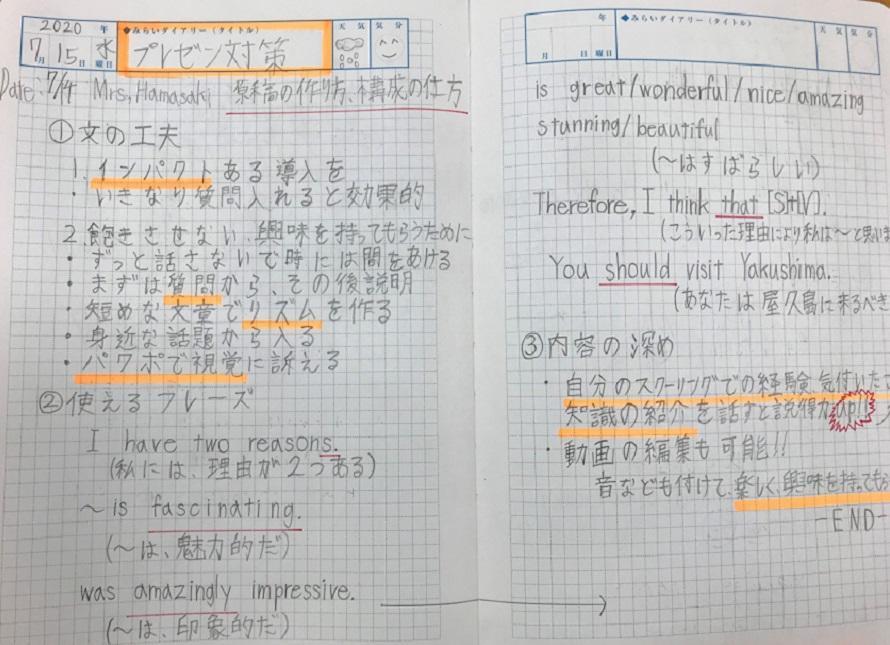 2020 年 ◆みらいダイアリー（タイトル） 天気 気分
7月 15日 水曜日 プレゼン対策
Date: 7/14 Mrs, Hamasaki 原稿の作り方、構成の仕方
①文の工夫
1. インパクトある導入を
・いきなり質問入れると効果的
2. 飽きさせない、興味を持ってもらうために
・ずっと話さないで時には間をあける
・まずは質問から、その後説明
・短めな文章でリズムを作る
・身近な話題から入る
・パワポで視覚に訴える
②使えるフレーズ
I have two reasons.
(私には、理由が2つある)
～is fascinating.
(～は、魅力的だ)
was amazingly impressive.
(～は、印象的だ)
年 ◆みらいダイアリー（タイトル） 天気 気分
月 日 曜日
is great/wonderful/nice/amazing
stunning/beautiful
(～はすばらしい)
Therefore, I think that [S+V].
(こういった理由により私は～と思いま
You should visit Yakushima.
(あなたは屋久島に来るべき
③内容の深め
・自分のスクーリングでの経験、気付いた
知識の紹介を話すと説得力up!!
・動画の編集も可能!!
音なども付けて、楽しく、興味を持ってもら
－END－